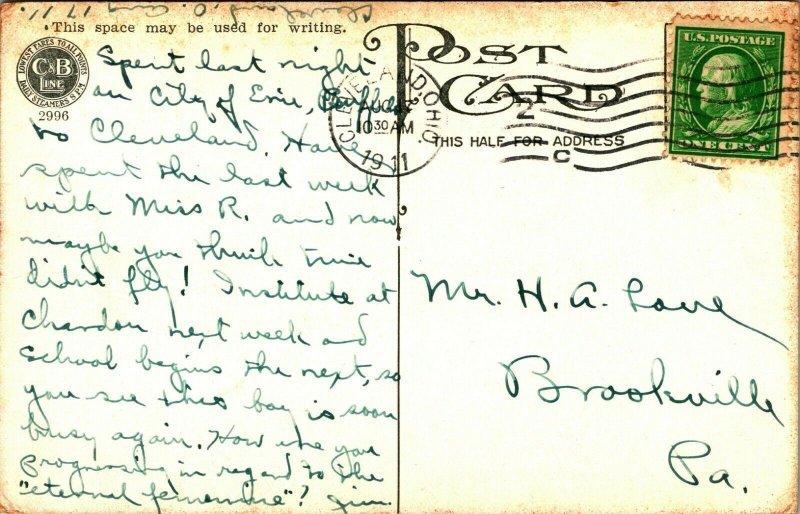 Cleveland, O. Aug 17 11.
This space may be used for writing.
LOWEST FARES TO ALL POINTS
C&B
LINE
DAILY STEAMERS
2996
Spent last night
on City of Erie, Buffalo
to Cleveland. Have
spent the last week
with Miss R. and now
maybe you think time
didn't fly! Institute at
Chardon next week and
school begins the next, so
you see this boy is soon
busy again. How are you
progressing in regard to the
"eternal feminine"? Jim.
POST
CARD
THIS HALF FOR ADDRESS
CLEVELAND, OHIO.
AUG
10 30 AM
1911
2
C
U.S. POSTAGE
ONE CENT
Mr. H. A. Love
Brookville
Pa.